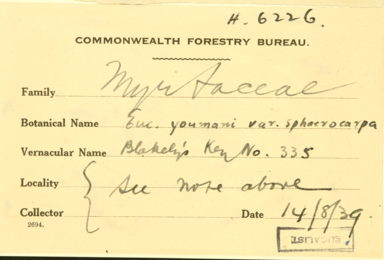 H. 6226.
COMMONWEALTH FORESTRY BUREAU.
Family Myrtaceae
Botanical Name Euc. youmani var. sphaerocarpa
Vernacular Name Blakely's Key No. 335
Locality See note above
Collector Date 14/8/39
2694.
EUCALIST